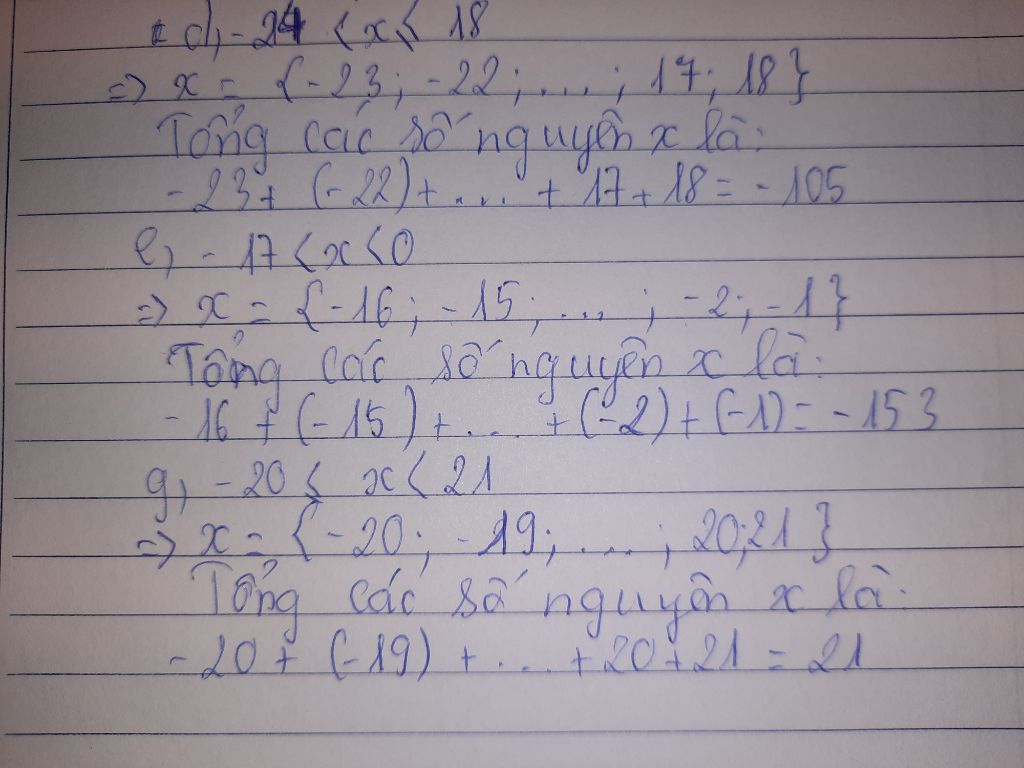 d, -24 < x ≤ 18
=> x = {-23; -22; ...; 17; 18}
Tổng các số nguyên x là:
-23 + (-22) + ... + 17 + 18 = -105
e, -17 < x < 0
=> x = {-16; -15; ...; -2; -1}
Tổng các số nguyên x là:
-16 + (-15) + ... + (-2) + (-1) = -153
g, -20 ≤ x < 21
=> x = {-20; -19; ...; 20; 21}
Tổng các số nguyên x là:
-20 + (-19) + ... + 20 + 21 = 21